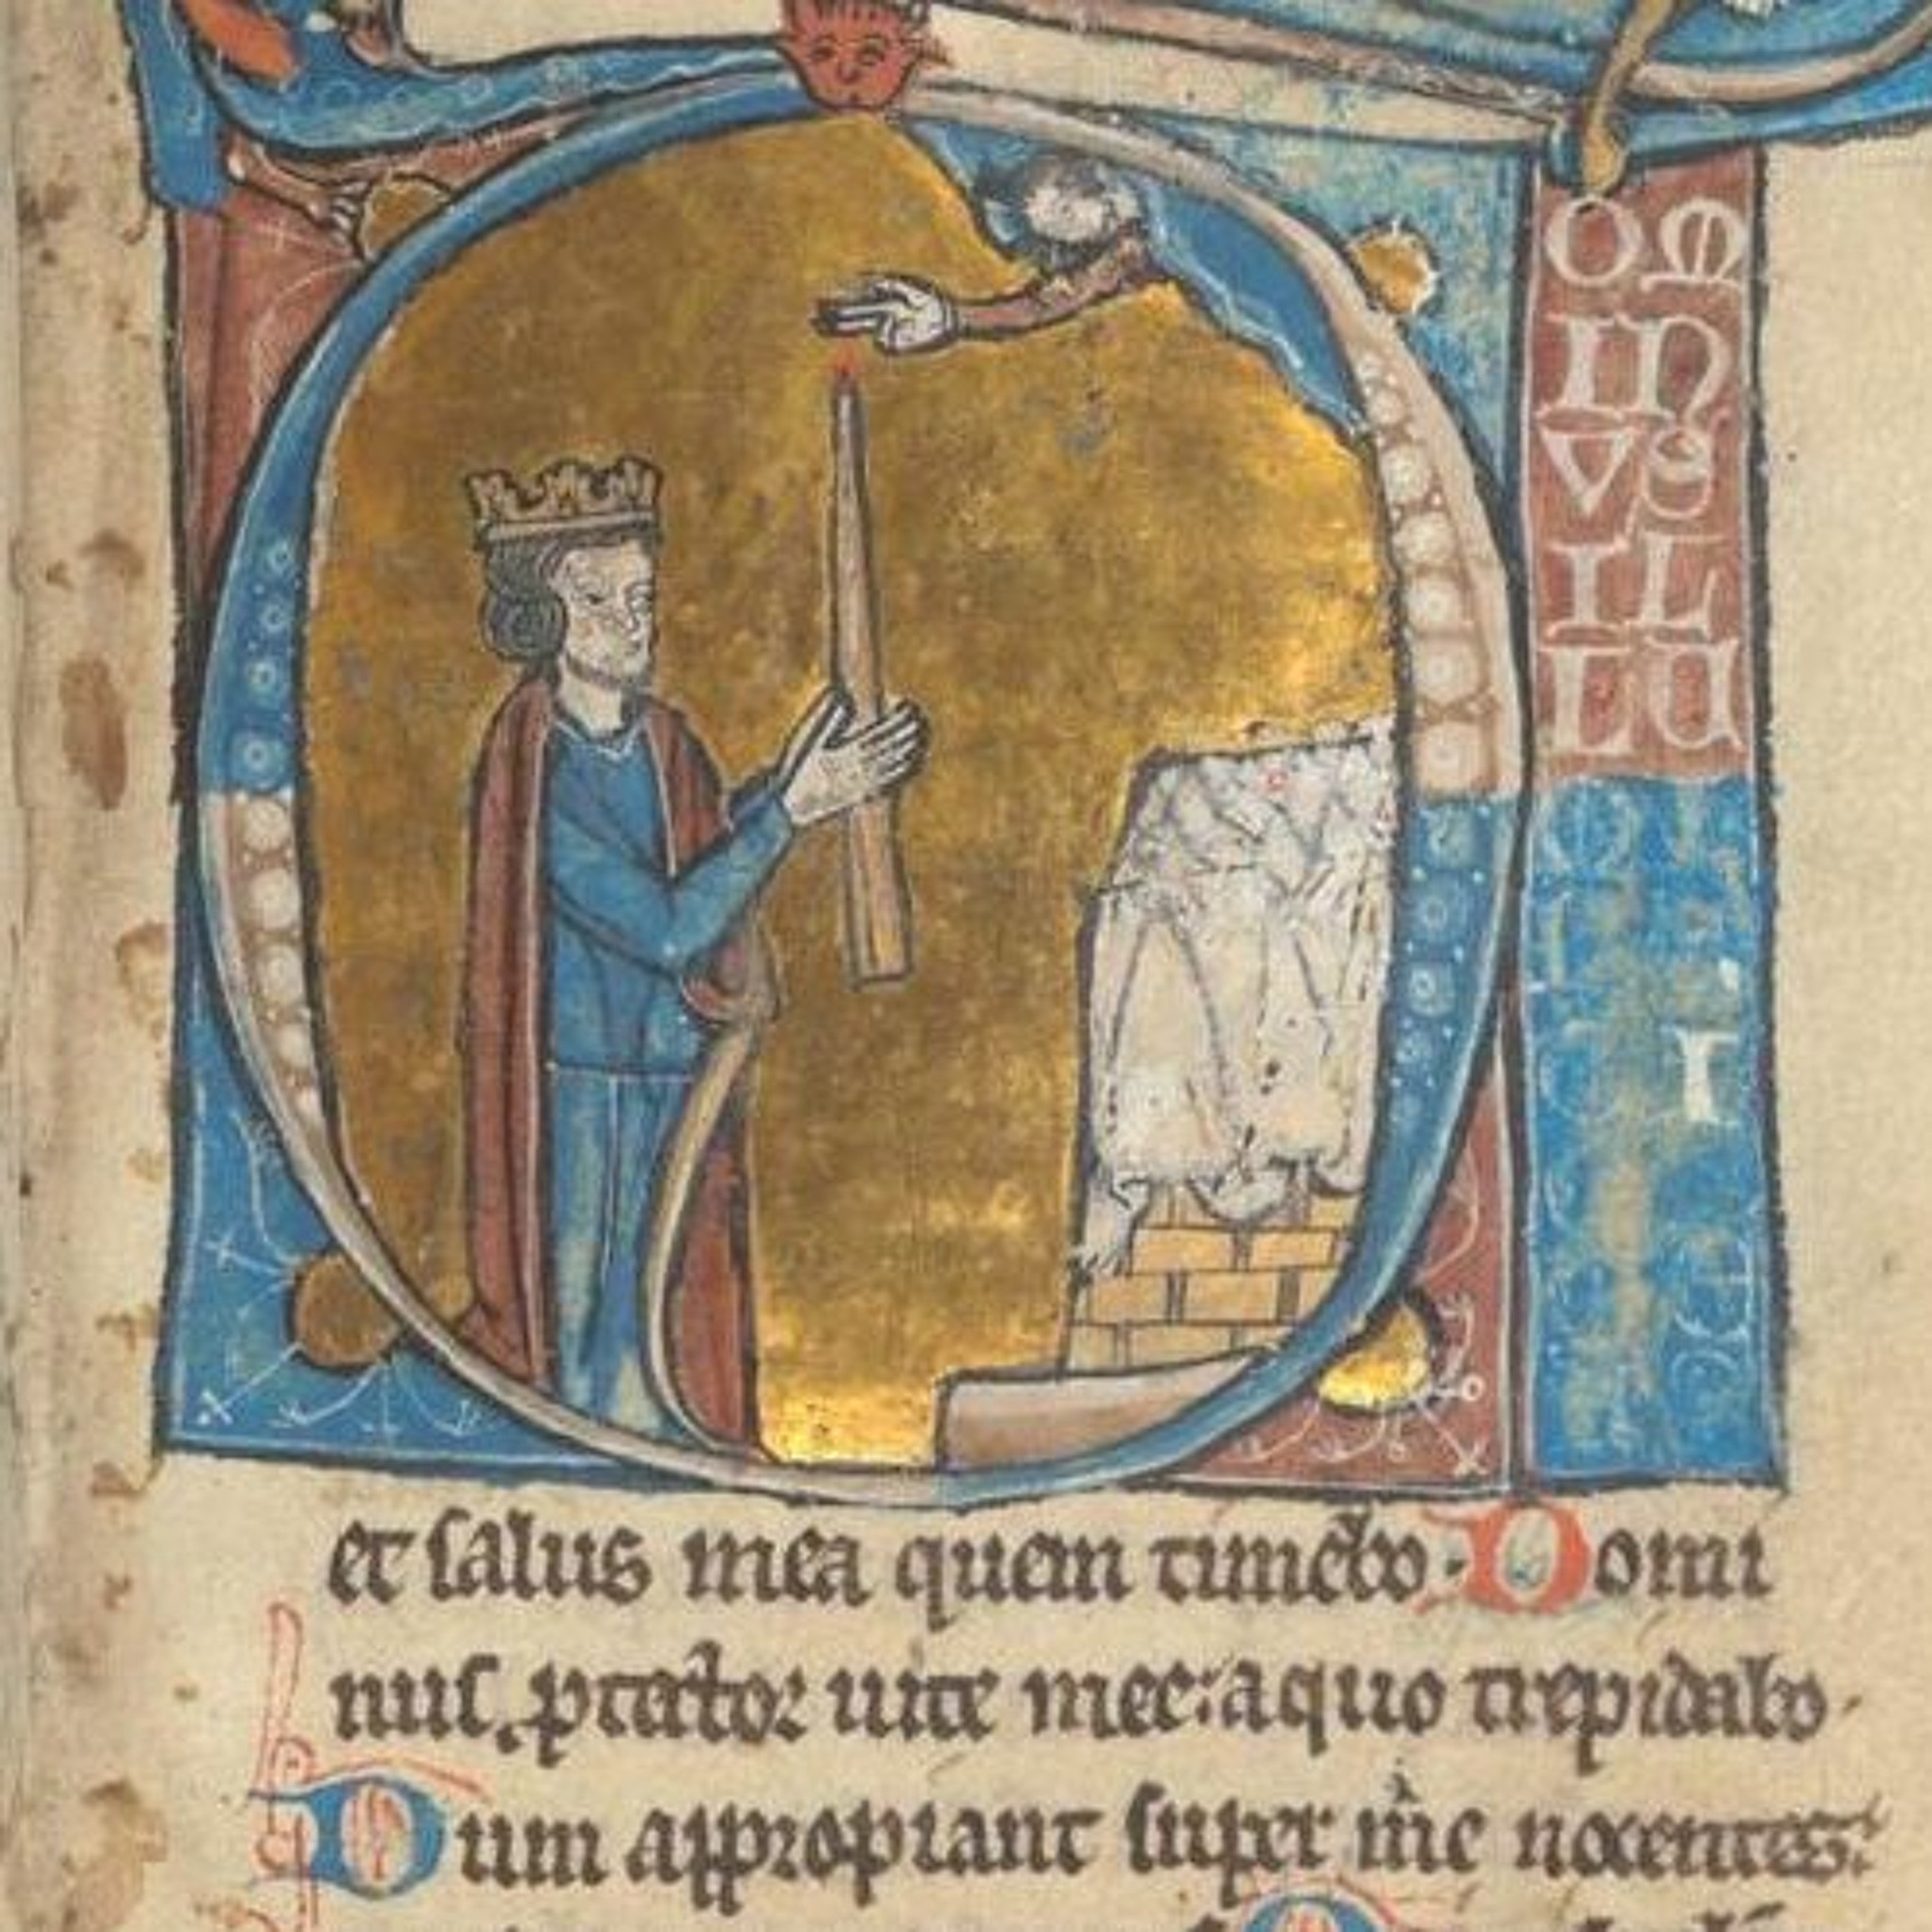 OM
IN
VS
IL
LU
I
et salus mea quem timebo. Domi
nus ptector uite mee: a quo trepidabo.
Dum appropiant super me nocentes: